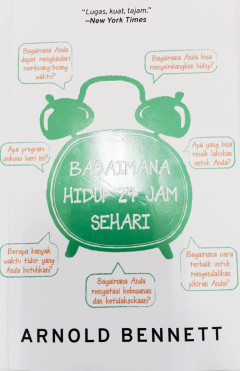 "Lugas, kuat, tajam."
—New York Times
Bagaimana Anda
dapat menghindari
membuang-buang
waktu?
Bagaimana Anda bisa
menyeimbangkan hidup?
Apa program
sukses hari ini?
Apa yang bisa
musik lakukan
untuk Anda?
BAGAIMANA
HIDUP 24 JAM
SEHARI
Berapa banyak
waktu tidur yang
Anda butuhkan?
Bagaimana Anda
mengatasi kebosanan
dan ketidaksukaan?
Bagaimana cara
terbaik untuk
mengendalikan
pikiran Anda?
ARNOLD BENNETT